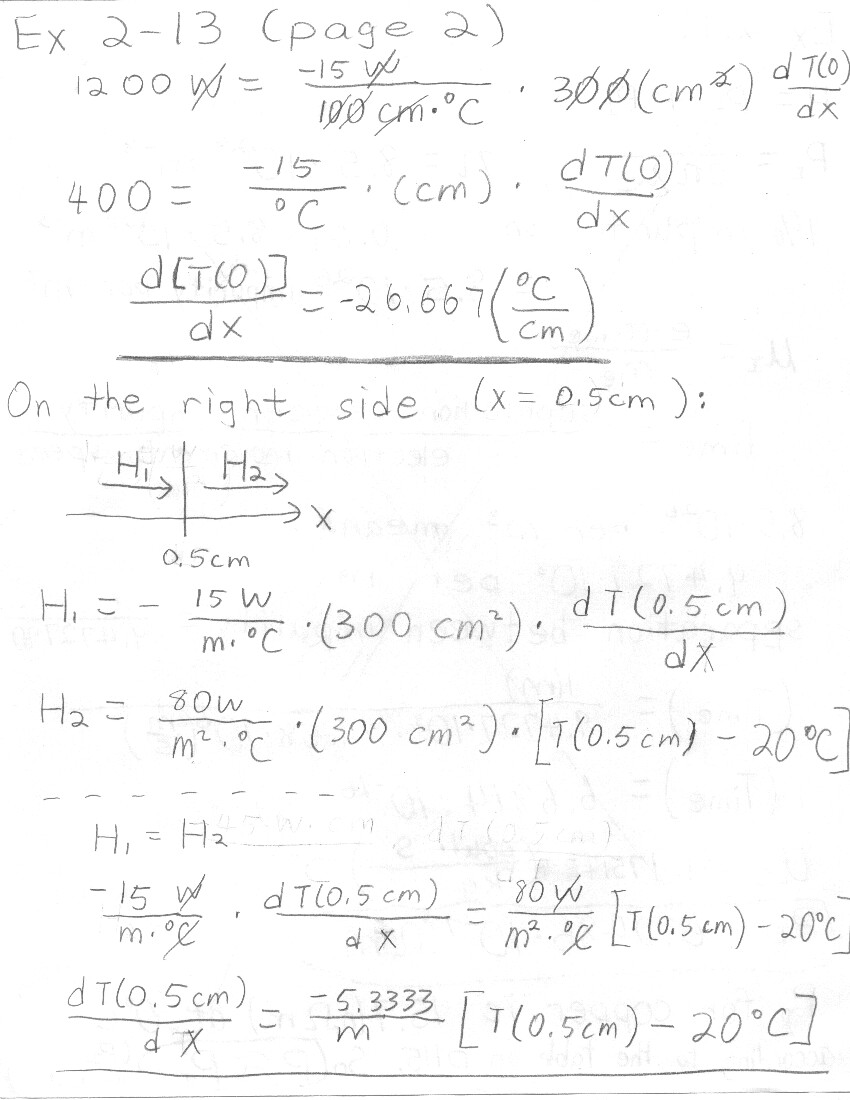 Ex 2-13 (page 2)
1200 W = -15 W / 100 cm·°C · 300 (cm²) dT(0)/dx
400 = -15/°C · (cm) · dT(0)/dx
d[T(0)]/dx = -26.667 (°C/cm)
On the right side (x = 0.5cm):
H₁ H₂
x
0.5cm
H₁ = - 15 W/m·°C · (300 cm²) · dT(0.5cm)/dX
H₂ = 80W/m²·°C · (300 cm²) · [T(0.5cm) - 20°C]
- - - - - - - -
H₁ = H₂
-15 W/m·°C · dT(0.5cm)/dX = 80 W/m²·°C [T(0.5cm) - 20°C]
dT(0.5cm)/dX = -5.3333/m [T(0.5cm) - 20°C]